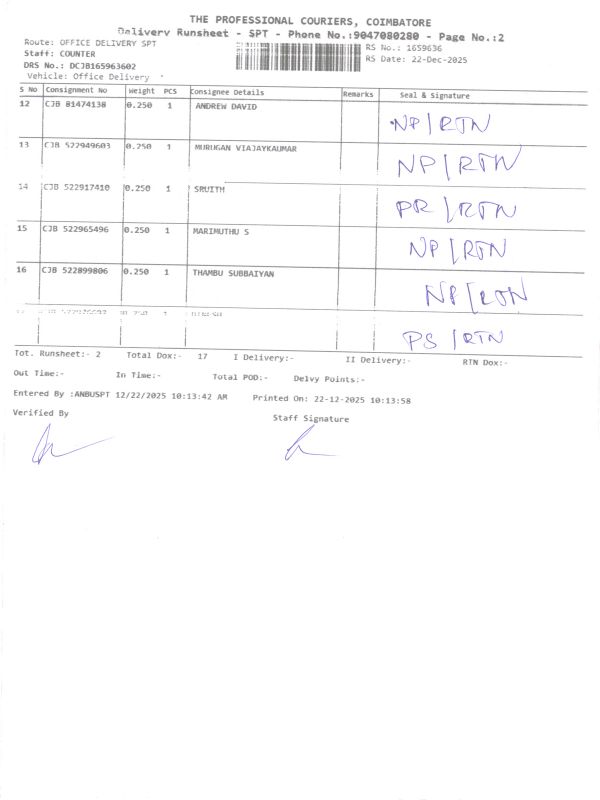 THE PROFESSIONAL COURIERS, COIMBATORE
Delivery Runsheet - SPT - Phone No.:9047080280 - Page No.:2
Route: OFFICE DELIVERY SPT RS No.: 1659636
Staff: COUNTER RS Date: 22-Dec-2025
DRS No.: DCJB165963602
Vehicle: Office Delivery
S No Consignment No Weight PCS Consignee Details Remarks Seal & Signature
12 CJB 81474138 0.250 1 ANDREW DAVID NP/RTN
13 CJB 522949603 0.250 1 MURUGAN VIAJAYKAUMAR NP/RTN
14 CJB 522917410 0.250 1 SRUITH PR/RTN
15 CJB 522965496 0.250 1 MARIMUTHU S NP/RTN
16 CJB 522899806 0.250 1 THAMBU SUBBAIYAN NP/RTN
PS/RTN
Tot. Runsheet:- 2 Total Dox:- 17 I Delivery:- II Delivery:- RTN Dox:-
Out Time:- In Time:- Total POD:- Delvy Points:-
Entered By :ANBUSPT 12/22/2025 10:13:42 AM Printed On: 22-12-2025 10:13:58
Verified By Staff Signature